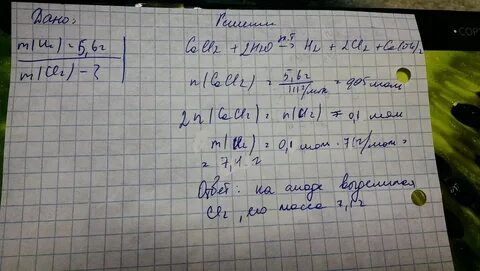 Дано:
m( ) = 5,6г
m(Cl2) - ?
Решение
CaCl2 + 2H2O = H2 + 2Cl2 + Ca(OH)2
n(CaCl2) = 5,6г / 111г/моль = 0,05 моль
2n(CaCl2) = n( ) = 0,1 моль
m(Cl2) = 0,1 моль · 71г/моль =
= 7,1 г
Ответ: на аноде выделился
Cl2, его масса 7,1г